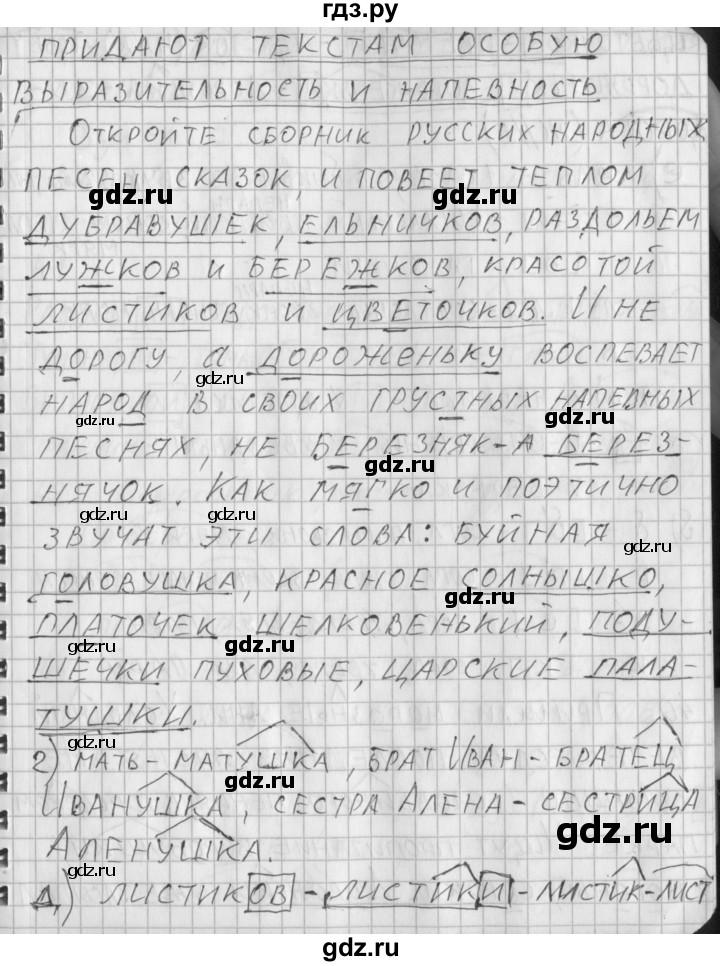 гдз.ру
ПРИДАЮТ ТЕКСТАМ ОСОБУЮ
ВЫРАЗИТЕЛЬНОСТЬ И НАПЕВНОСТЬ
ОТКРОЙТЕ СБОРНИК РУССКИХ НАРОДНЫХ
ПЕСЕН, СКАЗОК, И ПОВЕЕТ ТЕПЛОМ
gdz.ru gdz.ru
ДУБРАВУШЕК, ЕЛЬНИЧКОВ, РАЗДОЛЬЕМ
ЛУЖКОВ И БЕРЕЖКОВ, КРАСОТОЙ
ЛИСТИКОВ И ЦВЕТОЧКОВ. И НЕ
ДОРОГУ, А ДОРОЖЕНЬКУ ВОСПЕВАЕТ
gdz.ru
НАРОД В СВОИХ ГРУСТНЫХ НАПЕВНЫХ
gdz.ru gdz.ru
ПЕСНЯХ, НЕ БЕРЕЗНЯК-А БЕРЕЗ-
gdz.ru
НЯЧОК. КАК МЯГКО И ПОЭТИЧНО
ЗВУЧАТ ЭТИ СЛОВА: БУЙНАЯ
gdz.ru
ГОЛОВУШКА, КРАСНОЕ СОЛНЫШКО,
gdz.ru gdz.ru
ПЛАТОЧЕК ШЕЛКОВЕНЬКИЙ, ПОДУ-
gdz.ru gdz.ru
ШЕЧКИ ПУХОВЫЕ, ЦАРСКИЕ ПАЛА-
ТУШКИ.
2) МАТЬ- МАТУШКА, БРАТ ИВАН- БРАТЕЦ
gdz.ru gdz.ru
ИВАНУШКА, СЕСТРА АЛЕНА- СЕСТРИЦА
gdz.ru
АЛЕНУШКА.
gdz.ru
Д) ЛИСТИКОВ - ЛИСТИКИ - ЛИСТИК-ЛИСТ
gdz.ru
gdz.ru